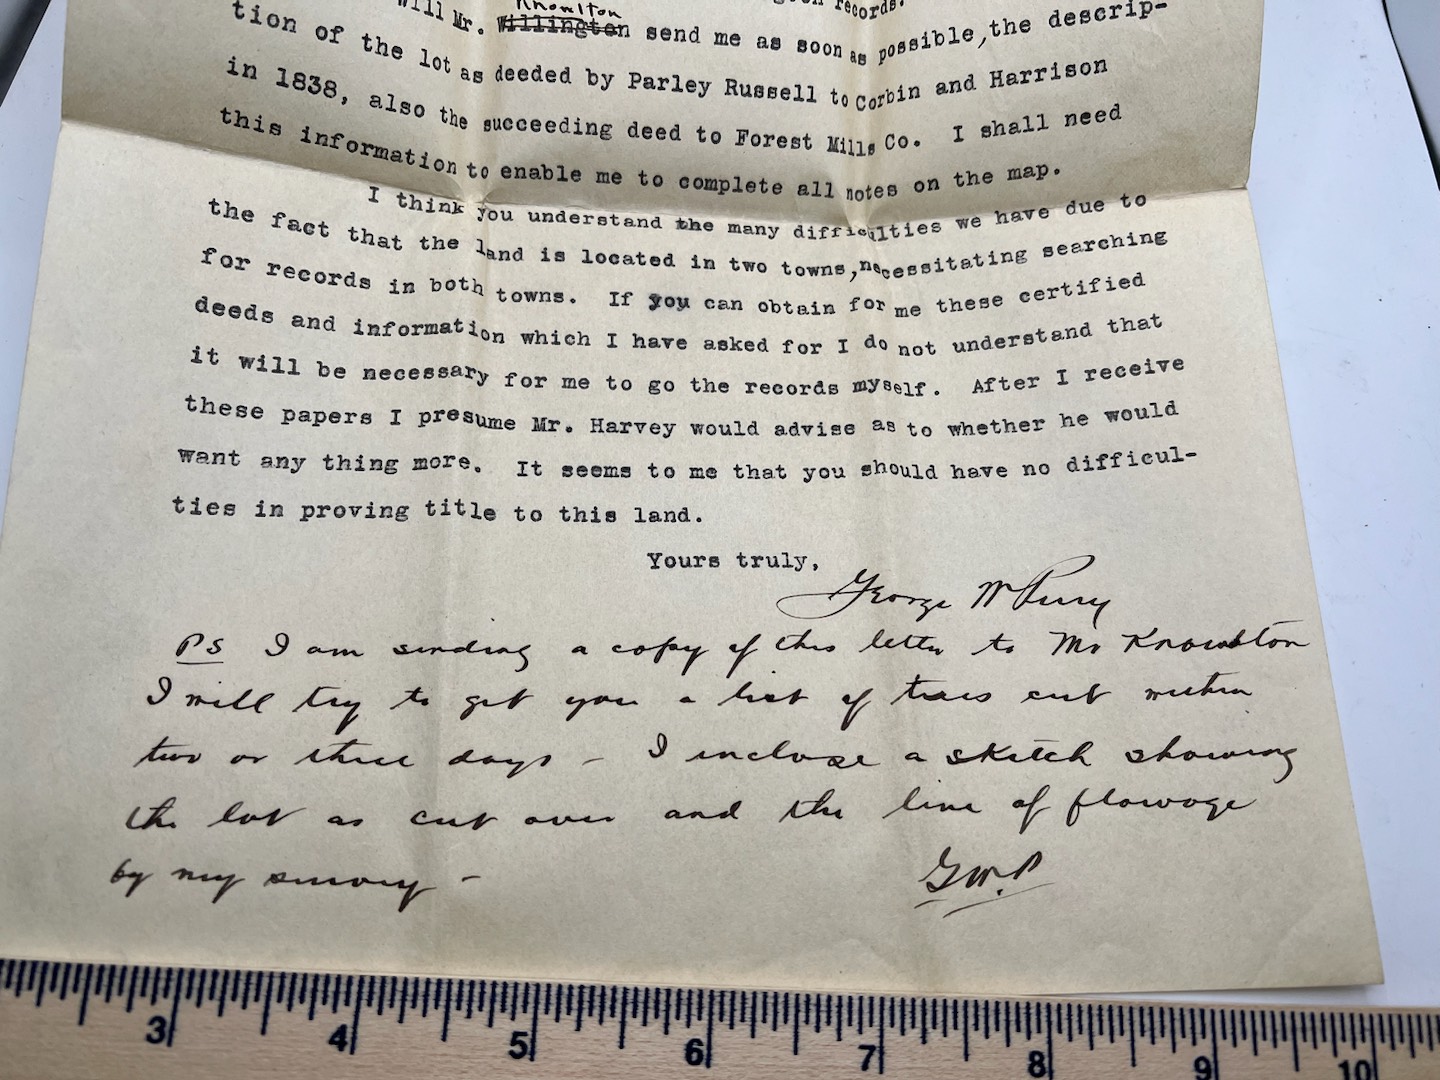 records.
Knowlton
Will Mr. Willington send me as soon as possible, the descrip-
tion of the lot as deeded by Parley Russell to Corbin and Harrison
in 1838, also the succeeding deed to Forest Mills Co. I shall need
this information to enable me to complete all notes on the map.
I think you understand the many difficulties we have due to
the fact that the land is located in two towns, necessitating searching
for records in both towns. If you can obtain for me these certified
deeds and information which I have asked for I do not understand that
it will be necessary for me to go the records myself. After I receive
these papers I presume Mr. Harvey would advise as to whether he would
want any thing more. It seems to me that you should have no difficul-
ties in proving title to this land.
Yours truly,
George W Perry
PS I am sending a copy of this letter to Mr Knowlton
I will try to get you a list of trees cut within
two or three days - I inclose a sketch showing
the lot as cut over and the line of flowage
by my survey -
G.W.P
3 4 5 6 7 8 9 10